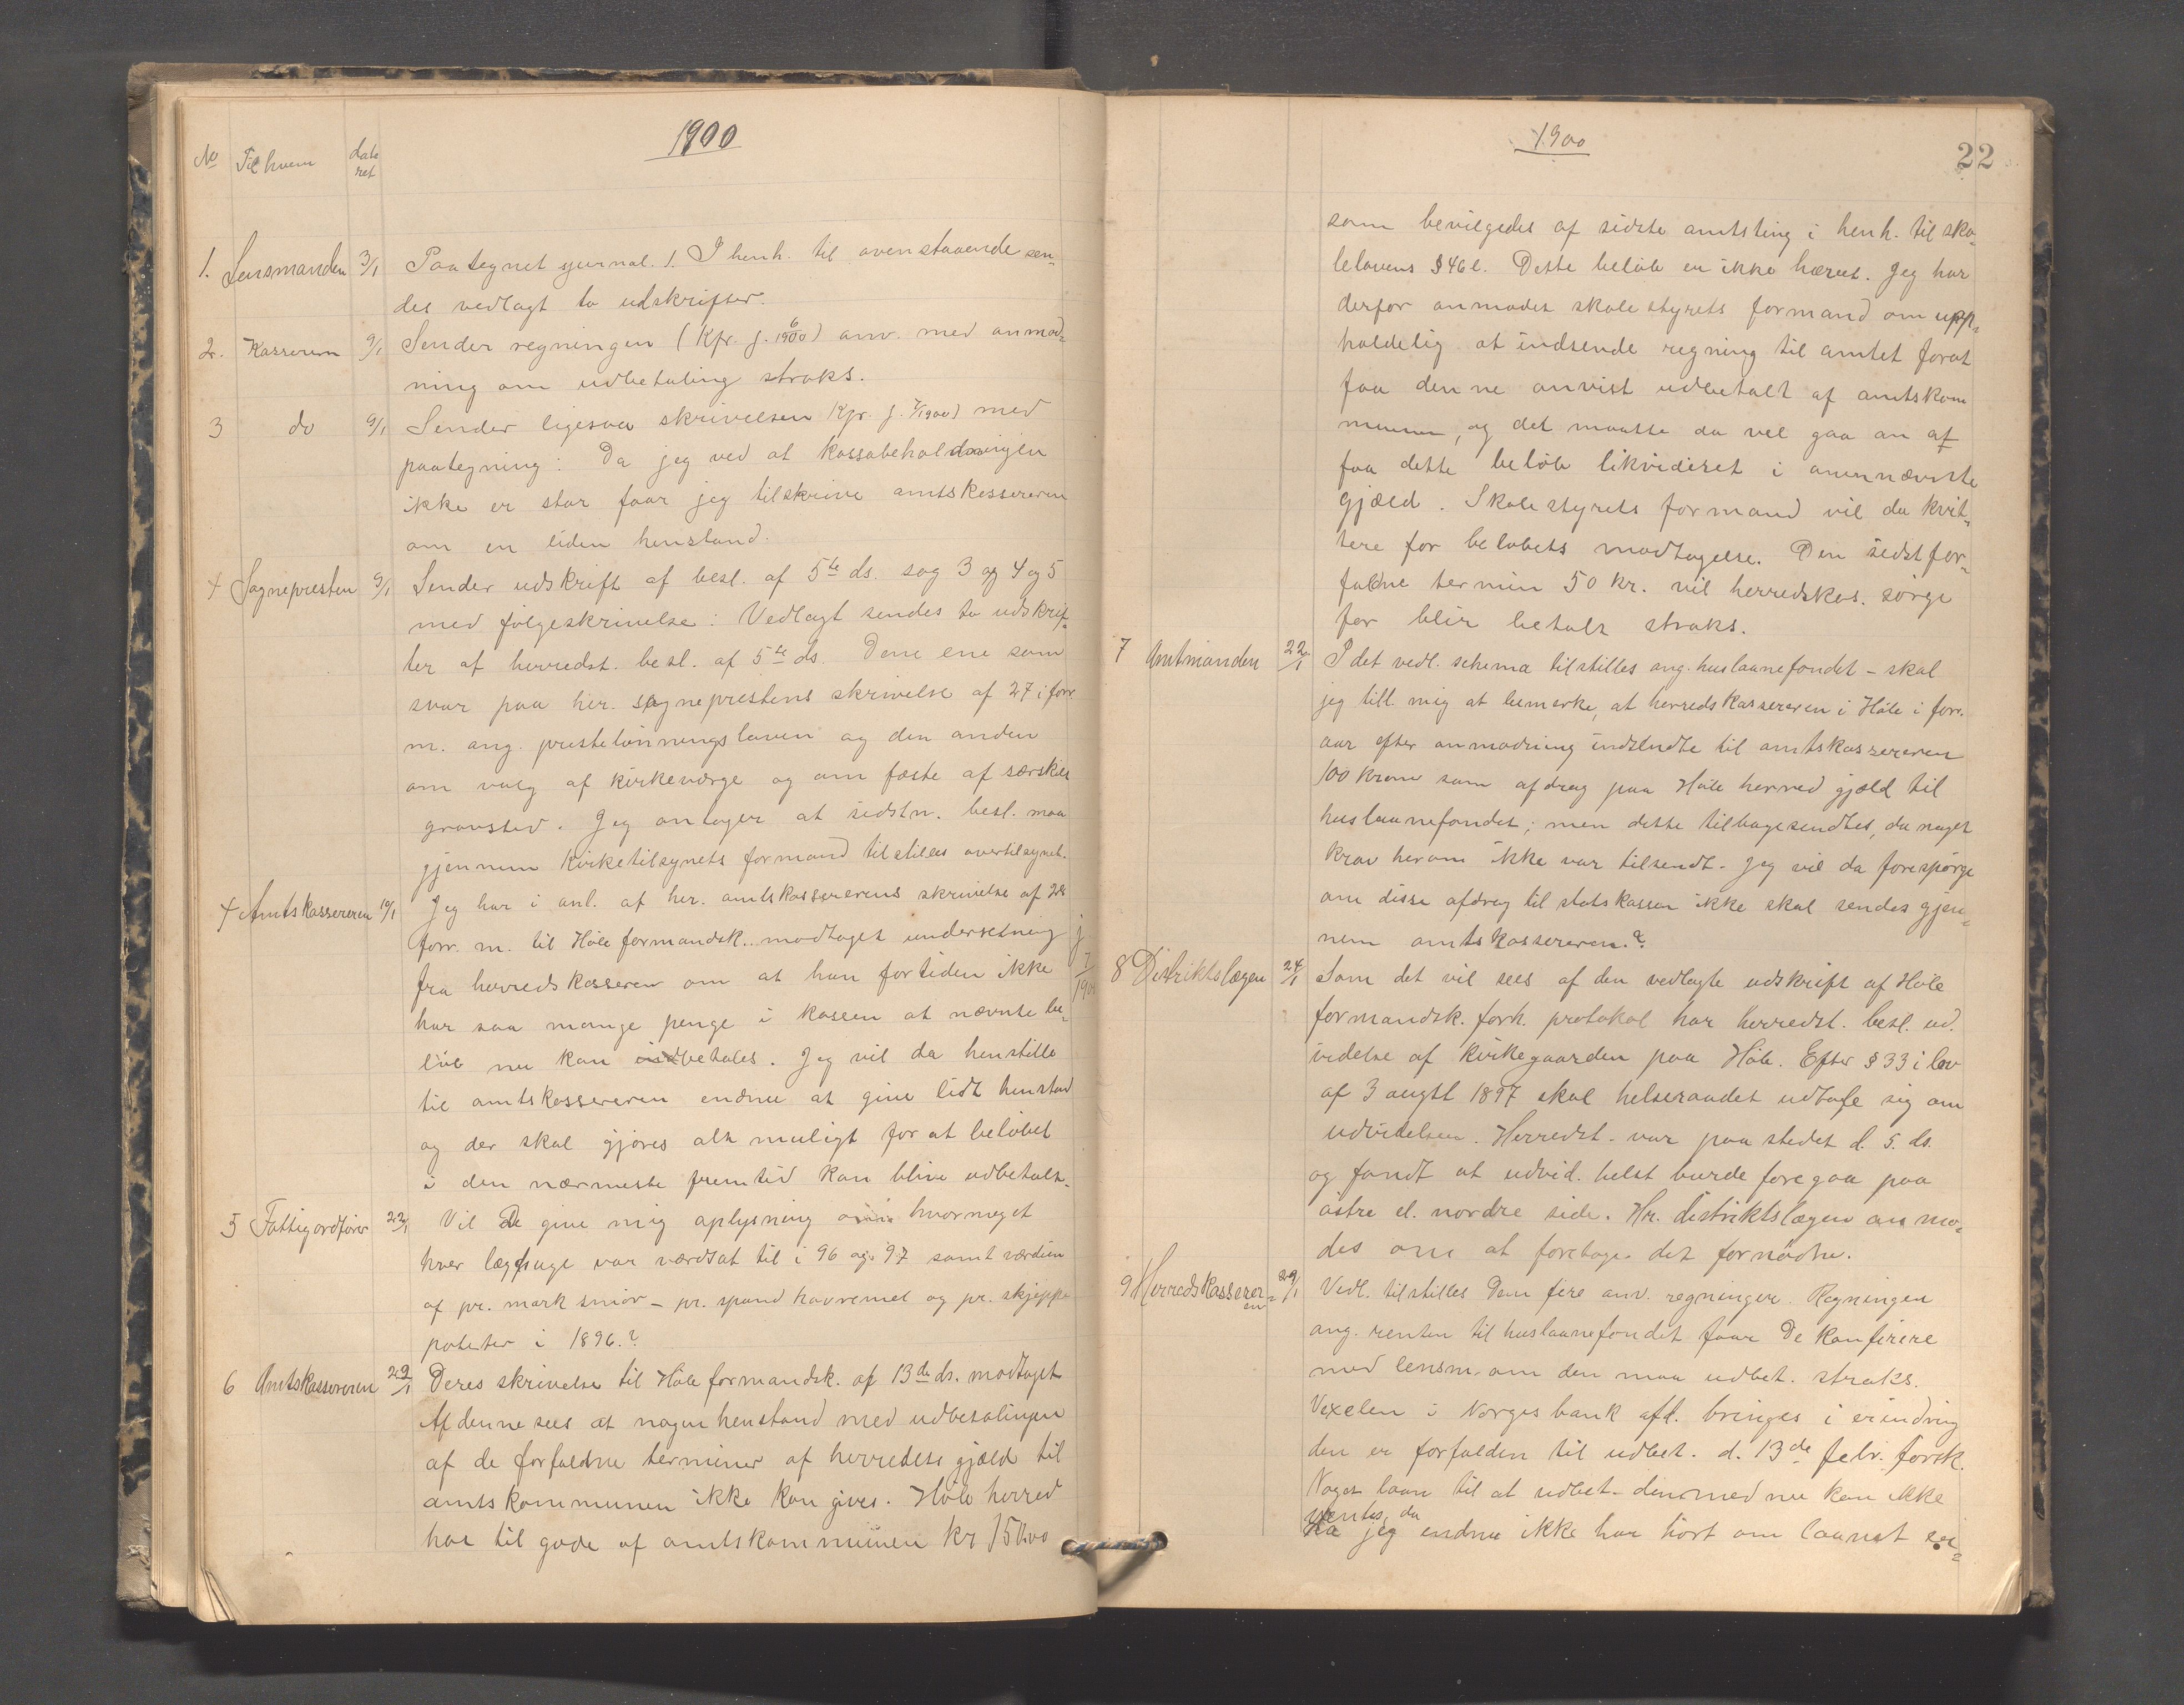 1900
No Til hvem dateret
1. Lensmanden 3/1 Paategnet jurnal. 1. I henh. til ovenstaaende sen-
des vedlagt to udskrifter.
2. Kasseren 9/1 Sender regningen (Kfr. j. 6/1900) anv. med anmod-
ning om udbetaling straks.
3 do 9/1 Sender ligesaa skrivelsen Kfr. j. 7/1900) med
paategning: Da jeg ved at kassabeholdningen
ikke er stor faar jeg tilskrive amtskassereren
om en liden henstand.
4 Sognepresten 9/1 Sender udskrift af besl. af 5te ds. sag 3 og 4 og 5
med følgeskrivelse: Vedlagt sendes to udskrif-
ter af herredst. besl. af 5te ds. Dene ene som
svar paa her. sogneprestens skrivelse af 27 i forr.
m. ang. prestelønningsloven og den anden
om valg af kirkeværge og om fæste af særskilt
gravsted. Jeg antager at sidstn. besl. maa
gjennem kirketilsynets formand tilstilles overtilsynet.
4 Amtskassereren 10/1 Jeg har i anl. af her. amtskassererens skrivelse af 28
forr. m. til Høle formandsk. modtaget underretning j
fra herredskasseren om at han fortiden ikke 7/1900
har saa mange penge i kassen at nævnte be-
løb nu kan indbetales. Jeg vil da henstille
til amtskassereren endnu at give lidt henstand
og der skal gjøres alt muligt for at beløbet
i den nærmeste fremtid kan blive udbetalt.
5 Fattigordfører 22/1 Vil De give mig oplysning om hvormeget
hver lægfuge var værdsat til i 96 og 97 samt værdien
af pr. mark smør - pr. spand havremel og pr. skjeppe
poteter i 1896.?
6 Amtskassereren 22/1 Deres skrivelse til Høle formandsk. af 13de ds. modtaget
Af denne sees at nogen henstand med udbetalingen
af de forfaldne terminer af herredets gjæld til
amtskommunen ikke kan gives. Høle herred
har til gode af amtskommunen kr 150.00
1900
22
som bevilgedes af sidste amtsting i henh. til sko-
lelovens § 46 l. Dette beløb er ikke hævet. Jeg har
derfor anmodet skolestyrets formand om upp-
holdelig at indsende regning til amtet forat
faa denne anvist udbetalt af amtskom
munen, og det maatte da vel gaa an at
faa dette beløb likvideret i ovennævnte
gjæld. Skolestyrets formand vil da kvit-
tere for beløbets modtagelse. Den sidst for-
faldne termin 50 kr. vil herredskas. sørge
for blir betalt straks.
7 Amtmanden 22/1 I det vedl. schema tilstilles ang. huslaanefondet - skal
jeg till. mig at bemerke, at herredskassereren i Høle i forr.
aar efter anmodning indsendte til amtskassereren
100 kroner som afdrag paa Høle herred gjæld til
huslaanefondet; men dette tilbagesendtes, da noget
krav herom ikke var tilsendt. Jeg vil da forespørge
om disse afdrag til statskassen ikke skal sendes gjen-
nem amtskassereren.?
8 Distriktslægen 24/1 Som det vil sees af den vedlagte udskrift af Høle
formandsk. forh. protokol har herredst. besl. ud.
videlse af kirkegaarden paa Høle. Efter § 33 i lov
af 3 augst 1897 skal helseraadet udtale sig om
udvidelsen. Herredst. var paa stedet d. 5. ds.
og fandt at udvid. helst burde foregaa paa
østre el. nordre side. Hr. distriktslægen anmo-
des om at foretage det fornødne.
9 Herredskasserer-
en 29/1 Vedl. tilstilles Dem fire anv. regninger. Regningen
ang. renten til huslaanefondet faar De konferere
med lensm. om den maa udbet. straks.
Vexelen i Norges bank afd. bringes i erindring
den er forfalden til udbet. d. 13de febr. førstk.
Noget laan til at udbet. den med nu kan ikke
ventes, da
jeg endnu ikke har hørt om laanet er-